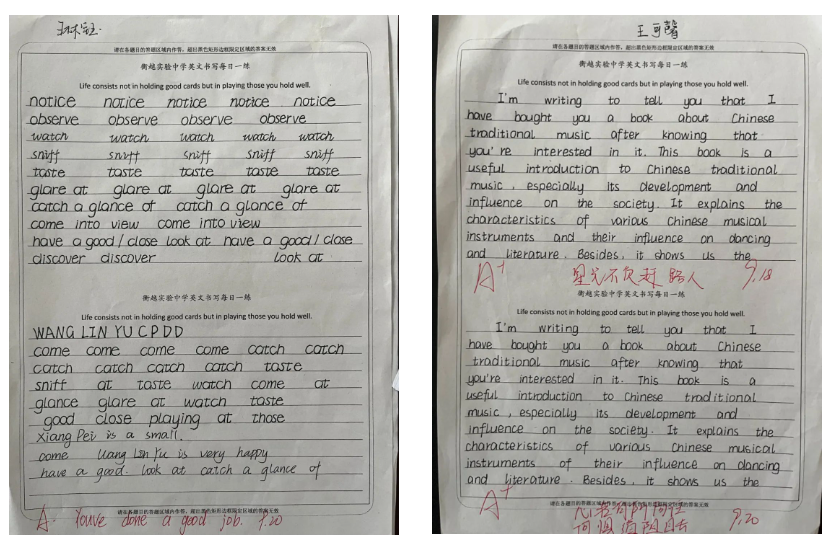 王林钰
请在各题目的答题区域内作答，超出黑色矩形边框限定区域的答案无效
衡越实验中学英文书写每日一练
Life consists not in holding good cards but in playing those you hold well.
notice notice notice notice notice
observe observe observe observe
watch watch watch watch watch
sniff sniff sniff sniff sniff
taste taste taste taste taste
glare at glare at glare at glare at
catch a glance of catch a glance of
come into view come into view
have a good / close look at have a good / close
discover discover look at
衡越实验中学英文书写每日一练
Life consists not in holding good cards but in playing those you hold well.
WANG LIN YU C P D D
come come come come catch catch
catch catch catch catch taste
sniff at taste watch come at
glance glare at watch taste
good close playing at those
Xiang Pei is a small.
come Wang Lin Yu is very happy
have a good. look at catch a glance of
请在各题目的答题区域内作答，超出黑色矩形边框限定区域的答案无效
A. Youve done a good job. 9.20
王可馨
请在各题目的答题区域内作答，超出黑色矩形边框限定区域的答案无效
衡越实验中学英文书写每日一练
Life consists not in holding good cards but in playing those you hold well.
I'm writing to tell you that I
have bought you a book about Chinese
traditional music after knowing that
you're interested in it. This book is a
useful introduction to Chinese traditional
music, especially its development and
influence on the society. It explains the
characteristics of various Chinese musical
instruments and their influence on dancing
and literature. Besides, it shows us the
A+ 星光不负赶路人 9.18
衡越实验中学英文书写每日一练
Life consists not in holding good cards but in playing those you hold well.
I'm writing to tell you that I
have bought you a book about Chinese
traditional music after knowing that
you're interested in it. This book is a
useful introduction to Chinese traditional
music, especially its development and
influence on the society. It explains the
characteristics of various Chinese musical
instruments of their influence on dancing
and literature. Besides, it shows us the
请在各题目的答题区域内作答，超出黑色矩形边框限定区域的答案无效
A+ 心若有所向往
何惧道阻且长 9.20